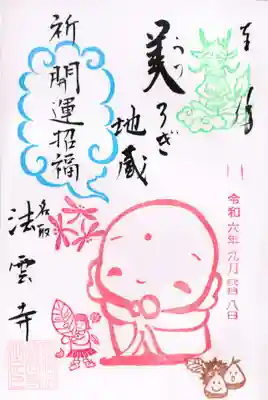 奉拝
美うつろぎ
地蔵
祈
開運招福
名取
法雲寺
令和六年九月 八日